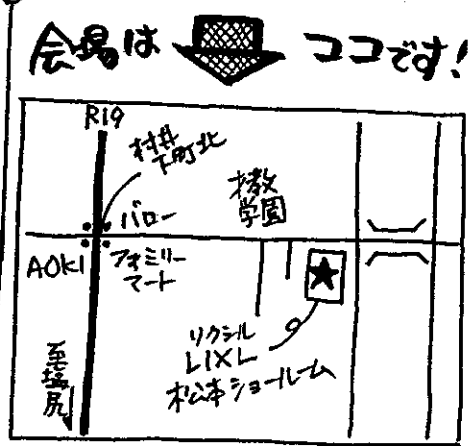 会場は ココです!
R19
村井
下町北
バロー
才教
学園
AOKI
ファミリー
マート
リクシル
LIXL
松本ショールーム
至塩尻